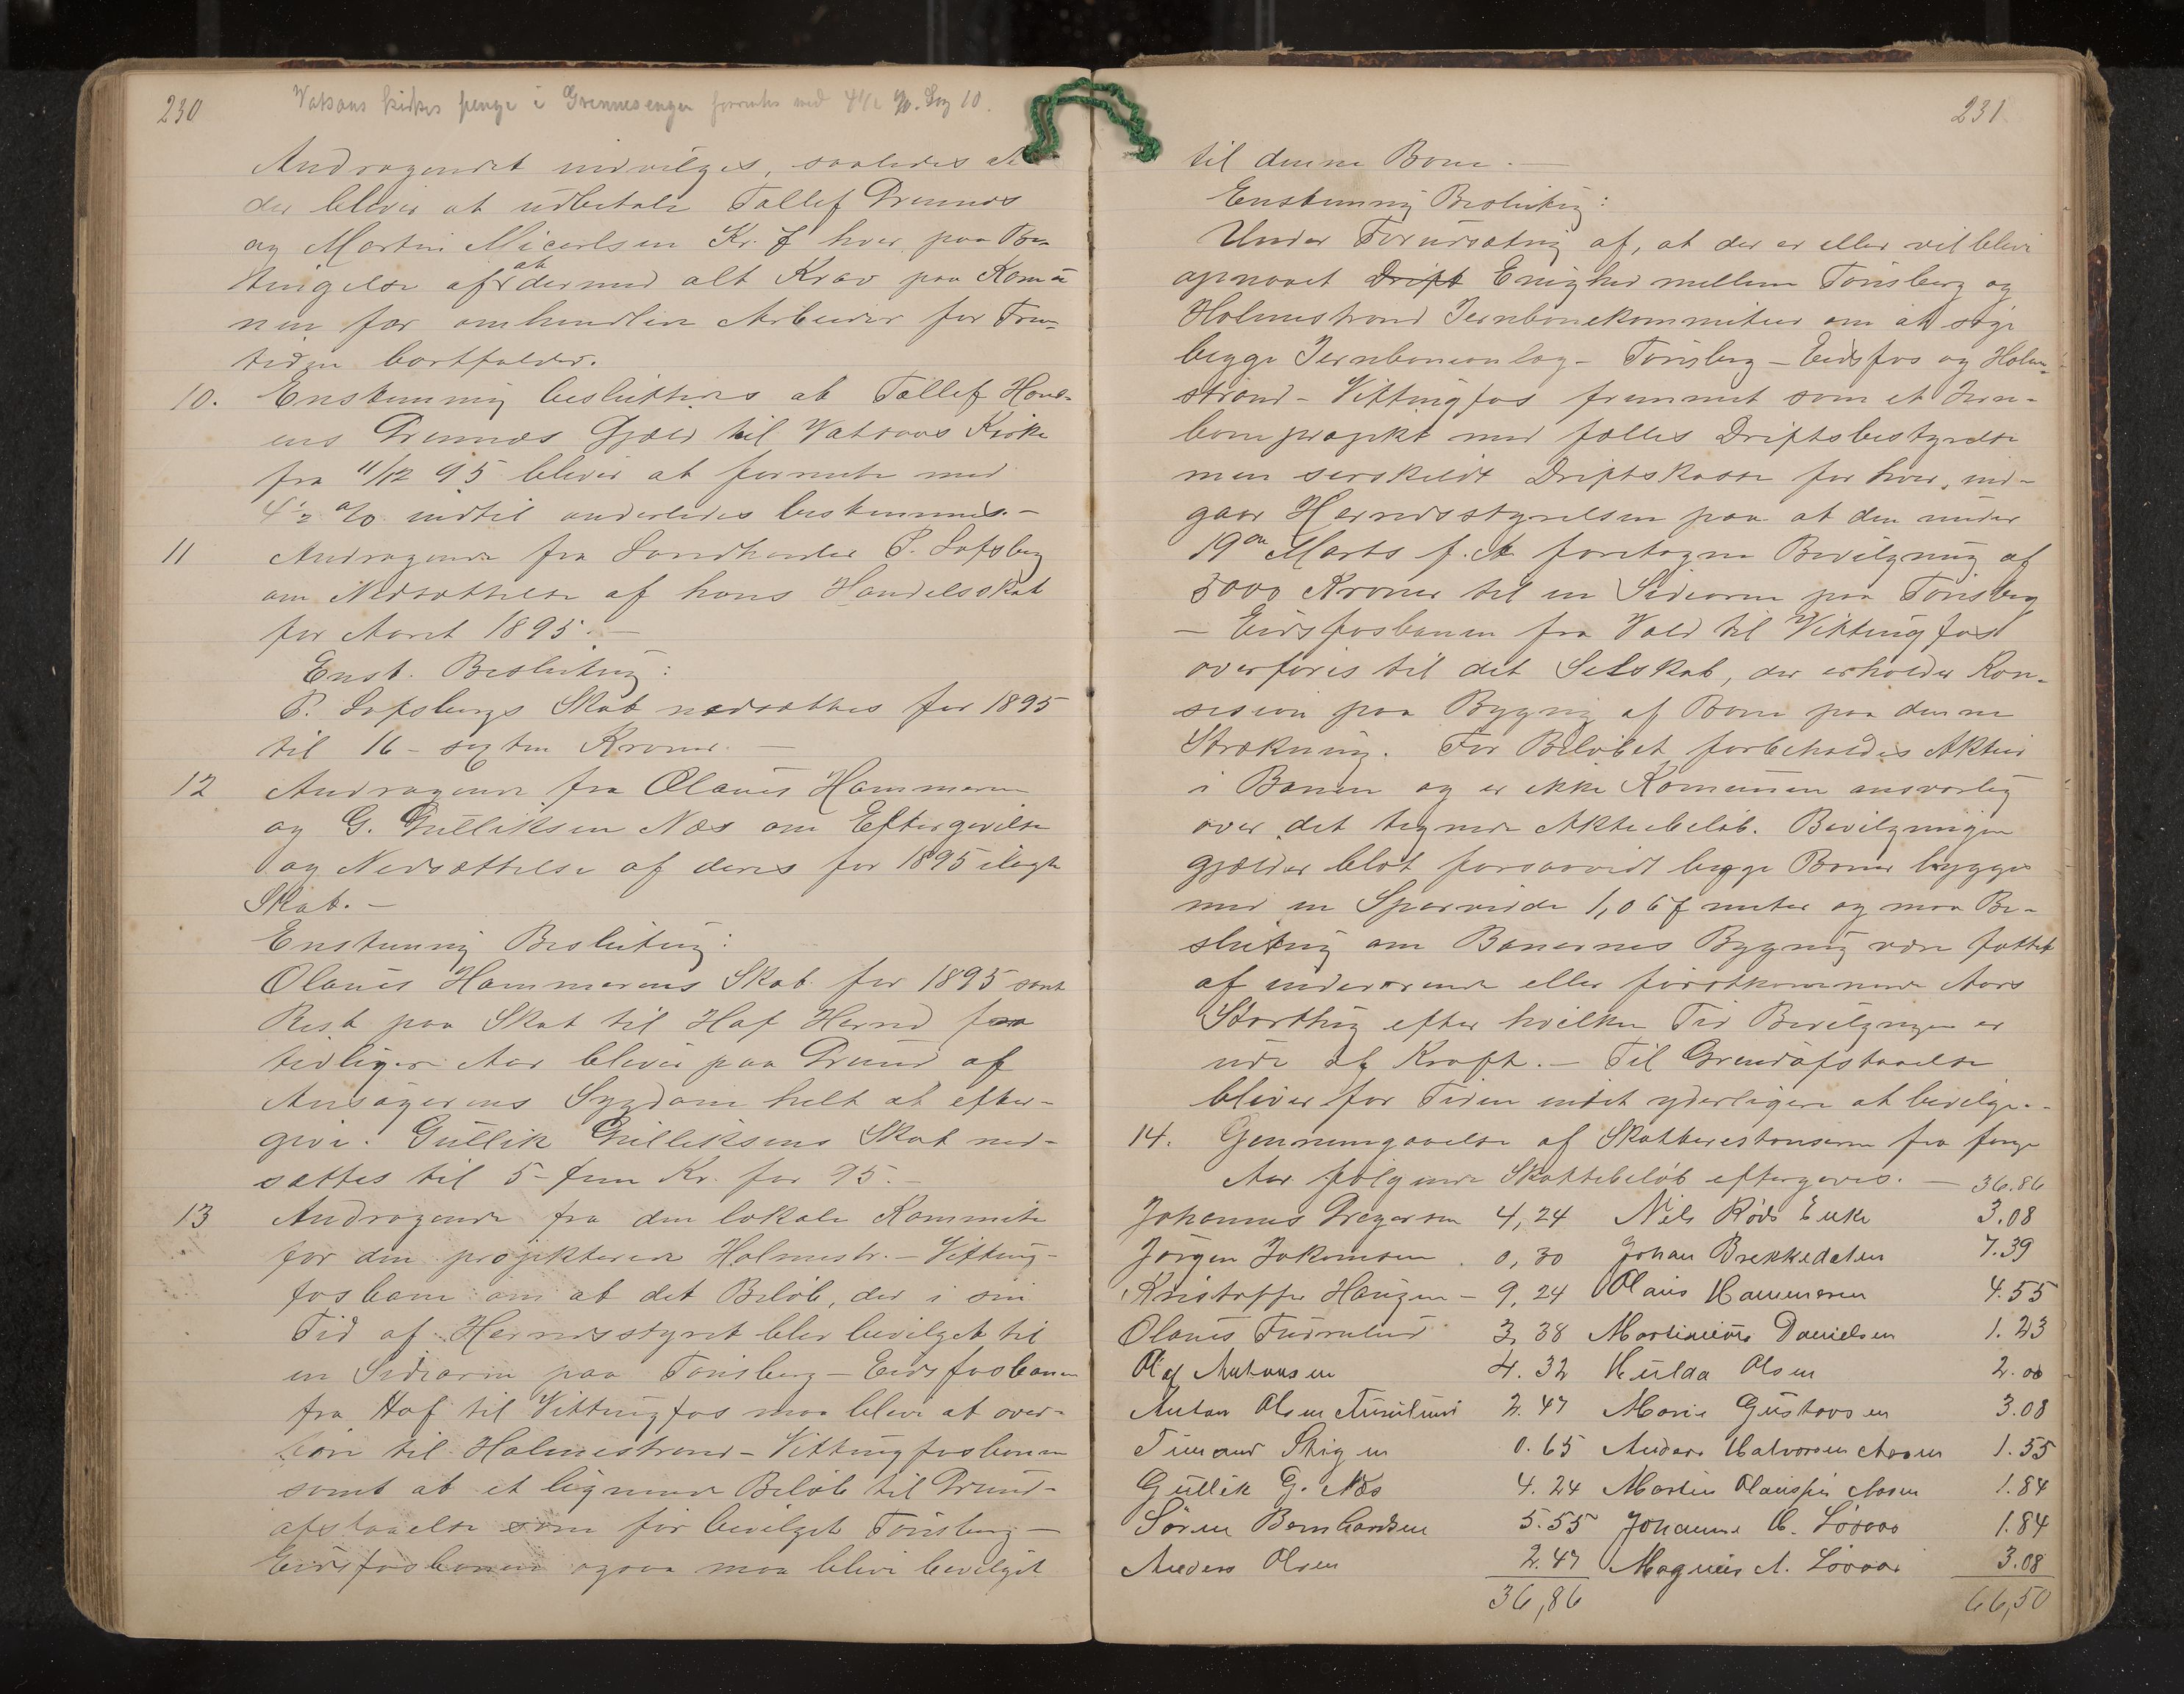 230
Vatsaas kirkes penge i Grennesengen forrentes med 4 1/2 %. Sag 10.
Andragendet indvilges, saaledes at
der bliver at udbetale Tollef Grennes
og Martin Kr. 7 hver paa Be-
tingelse af at dermed alt Krav paa Komu-
nen for omhandlede Arbeider for Frem-
tiden bortfalder.
10. Enstemmig besluttedes at Tollef Hans-
ens Grennes Gjæld til Vatsaas Kirke
fra 11/12 95 bliver at forrente med
4 1/2 % indtil anderledes bestemmes. -
11 Andragende fra Landhandler P. Lofsberg
om Nedsættelse af hans Handelsskat
for Aaret 1895. -
Enst. Beslutning:
P. Lofsbergs Skat nedsættes for 1895
til 16 - sexten Kroner. -
12 Andragende fra Olaus Hammeren
og G. Gulliksen Næs om Eftergivelse
og Nedsættelse af deres for 1895 ilagte
Skat. -
Enstemmig Beslutning:
Olaus Hammerens Skat for 1895 samt
Rest paa Skat til Hof Herred fra
tidligere Aar bliver paa Grund af
Ansøgerens Sygdom helt at efter-
give. Gullik Gulliksens Skat ned-
sættes til 5 - fem Kr. for 95. -
13 Andragende fra den lokale Kommite
for den projekterede Holmestr. - Vitting-
fosbane om at det Beløb, der i sin
Tid af Herredsstyret blev bevilget til
en Sidearm paa Tønsberg - Eidsfosbanen
fra Hof til Vittingfos maa blive at over-
føre til Holmestrand - Vittingfosbanen
samt at et lignende Beløb til Grund-
afstaaelse som før bevilget Tønsberg -
Eidsfosbanen ogsaa maa blive bevilget
231
til denne Bane. -
Enstemmig Beslutning:
Under Forudsætning af, at der er eller vil blive
opnaaet Drift Enighed mellem Tønsberg og
Holmestrand Jernbanekommiteer om at søge
begge Jernbaneanlæg - Tønsberg - Eidsfos og Holm-
strand - Vittingfos fremmet som et Jern-
baneprojekt med fælles Driftsbestyrelse
men særskildt Driftskasse for hver, ind-
gaar Herredsstyrelsen paa at den under
19de Marts f. A. foretagne Bevilgning af
5000 Kroner til en Sidearm paa Tønsberg
- Eidsfosbanen fra Vold til Vittingfos
overføres til det Selskab, der erholder Kon-
sesion paa Bygning af Bane paa denne
Strækning. For Beløbet forbeholdes Aktier
i Banen og er ikke Komunen ansvarlig
over det tegnede Aktiebeløb. Bevilgningen
gjælder blot forsaavidt begge Baner bygges
med en Sporvidde 1,067 meter og maa Be-
slutning om Banernes Bygning være fattet
af indeværende eller førstkommende Aars
Storthing efter hvilken Tid Bevilgningen er
ude af Kraft. - Til Grundafstaaelse
bliver for Tiden intet yderligere at bevilge. -
14. Gjennemgaaelse af Skatterestanserne fra forige
Aar følgende Skattebeløb eftergaves. - 36.86
Johannes Gregersen 4,24 Nils Røds Enke 3.08
Jørgen Jakobsen 0,30 Johan Brekkedalen 7.39
Kristoffer Haugen - 9,24 Olaus Hammeren 4.55
Olaus Furulund 3,38 Martinius Danielsen 1.23
Olaf Antonsen 4.32 Hulda Olsen 2.00
Anton Olsen Furulund 2.47 Marie Gustavsen 3.08
Stigen 0.65 Anders Halvorsen Aasen 1.55
Gullik G. Næs 4.24 Martin Aasen 1.84
Søren Bernhardsen 5.55 Johannes H. 1.84
Anders Olsen 2.47 Magnus A. 3.08
36,86 66,50